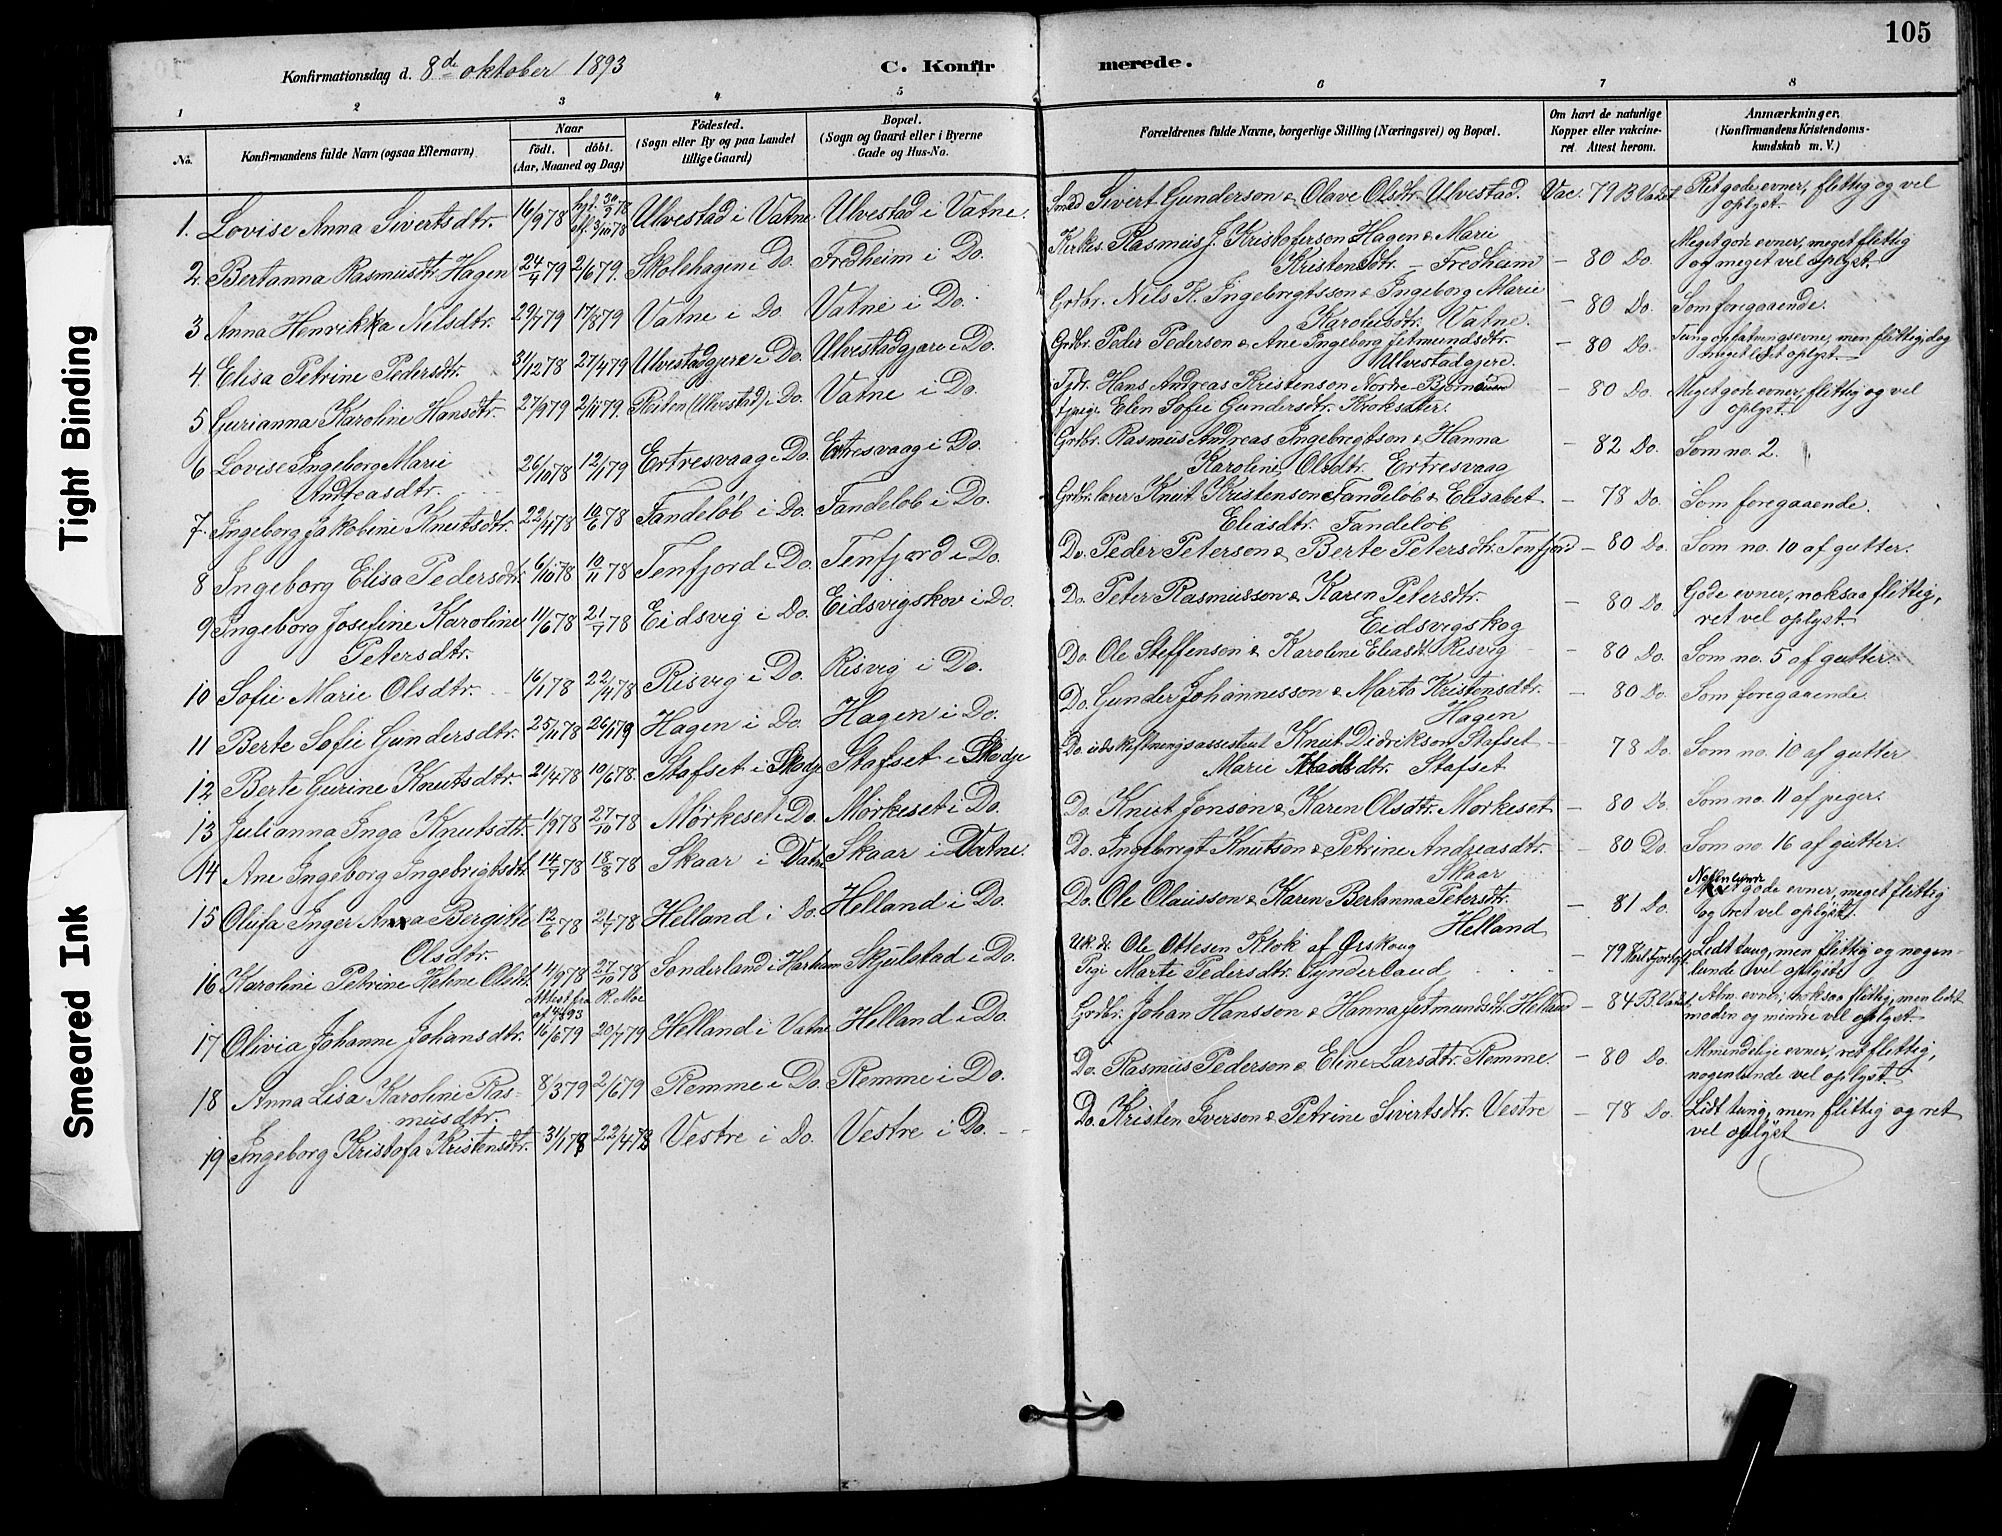 105
Konfirmationsdag d. 8de oktober 1893
C. Konfir
merede.
1 2 3 4 5 6 7 8
No.
Konfirmandens fulde Navn (ogsaa Efternavn)
Naar
født. døbt.
(Aar, Maaned og Dag)
Födested.
(Sogn eller By og paa Landet
tillige Gaard)
Bopæl.
(Sogn og Gaard eller i Byerne
Gade og Hus-No.
Forældrenes fulde Navne, borgerlige Stilling (Næringsvei) og Bopæl.
Om havt de naturlige
Kopper eller vakcine-
ret. Attest herom.
Anmærkninger.
(Konfirmandens Kristendoms-
kundskab m. V.)
1. Lovise Anna Sivertsdtr. 16/9 78 hjd. 20/9 78 Ulvestad i Vatne Ulvestad i Vatne. Smed Sivert Gunderson & Olave Olsdtr. Ulvestad. Vac. 79 B. Ret gode evner, flittig og vel
3/11 78 oplyst.
2. Bertanna Rasmusdtr Hagen 24/4 79 2/6 79. Skolehagen i Do. Fredheim i Do. Kirkes. Rasmus J. Kristoferson Hagen & Marie
Kristensdtr. – Fredheim – 80 Do. Meget gode evner, meget flittig
og meget vel oplyst.
3 Anna Henrikka Nelsdtr. 29/7 79 17/8 79 Vatne i Do. Vatne i Do. Grdbr. Nils K. Ingebregtsson & Ingeborg Marie
Karolusdtr. Vatne. – 80 Do. Som foregaaende.
4. Elisa Petrine Pedersdtr. 31/12 78 27/4 79 Ulvestadgjære i Do. Ulvestadgjære i Do. Grdbr. Peder Pederson & Ane Ingeborg Jetmundsdtr.
Ulvestadgjære. – 80 Do. Tung opfatningsevne, men flittig, dog
meget lidet oplyst.
5 Gurianna Karoline Hansdtr. 27/9 79 2/11 79 Reiten (Ulvestad) i Do. Vatne i Do. Tjdr. Hans Andreas Kristenson Nordre
tj.pige Elen Sofie Gundersdtr. Kroksæter. – 80 Do. Meget gode evner, flittig og vel
oplyst.
6 Lovise Ingeborg Marie
Andreasdtr. 26/10 78 12/1 79 Ertresvaag i Do. Ertresvaag i Do. Grdbr. Rasmus Andreas Ingebregtson & Hanna
Karoline Olsdtr. Ertresvaag – 82 Do. Som no. 2.
7. Ingeborg Jakobine Knutsdtr. 22/4 78 10/6 78 Fandeløb i Do. Fandeløb i Do. Grdbr. lærer Knut Kristenson Fandeløb & Elisabet
Eliasdtr. Fandeløb – 78 Do. Som foregaaende.
8 Ingeborg Elisa Pedersdtr. 6/10 78 10/11 78 Tenfjord i Do. Tenfjord i Do. Do. Peder Peterson & Berte Petersdtr. Tenfjord – 80 Do. Som no. 10 af gutter.
9 Ingeborg Josefine Karoline
Petersdtr. 11/6 78 21/7 78 Eidsvig i Do. Eidsvigskov i Do. Do. Peter Rasmusson & Karen Petersdtr.
Eidsvigskog – 80 Do. Gode evner, noksaa flittig,
ret vel oplyst.
10 Sofie Marie Olsdtr. 16/1 78 22/4 78 Risvig i Do. Risvig i Do. Do. Ole Steffenson & Karoline Eliasdt. Risvig – 80 Do. Som no. 5 af gutter.
11 Berte Sofie Gundersdtr. 25/11 78 26/1 79 Hagen i Do. Hagen i Do. Do. Gunder Johannesson & Marta Kristensdtr.
Hagen – 80 Do. Som foregaaende.
12 Berte Gurine Knutsdtr. 21/4 78 10/6 78. Stafset i Skodje Stafset i Skodje Do. udskiftningsassistent Knut Didrikson Stafset
Marie dtr. Stafset – 78 Do. Som no. 10 af gutter
13 Julianna Inga Knutsdtr. 1/9 78 27/10 78 Mørkeset i Do. Mørkeset i Do. Do. Knut Jonson & Karen Olsdtr. Mørkeset – 80 Do. Som no. 11 af piger.
14 Ane Ingeborg Ingebrigtsdtr. 14/7 78 18/8 78 Skaar i Vatne Skaar i Vatne. Do. Ingebregt Knutson & Petrine Andreasdtr.
Skaar – 80 Do. Som no. 16 af gutter.
15 Olufa Inger Anna Bergitte
Olsdtr. 12/6 78 21/7 78 Helland i Do. Helland i Do. Do. Ole Olausson & Karen Bertanna Petersdtr.
Helland – 81 Do. gode evner, meget flittig
og ret vel oplyst.
16 Karoline Petrine Helene Olsdt. 4/9 78 27/10 78 Sønderland i Harham Skjelstad i Do. Uk. dr. Ole Ottesen Klok af Ørskoug
Pige Marte Pedersdtr. Synderland 79 Lidt tung, men flittig og nogen-
lunde vel oplyst.
Attest fra R. Moe
af 4/9 93
17 Olivia Johanne Johansdtr. 16/6 79 20/7 79 Helland i Vatne Helland i Do. Grdbr. Johan Hansson & Hanna Jetmundsdtr. Helland – 84 B. Alm. evner, noksaa flittig, men lidt
moden og mindre vel oplyst.
18 Anna Lisa Karoline Ras-
musdtr. 8/3 79 2/6 79 Remme i Do. Remme i Do. Do. Rasmus Pederson & Eline Larsdtr. Remme. – 80 Do. Almindelige evner, ret flittig,
nogenlunde vel oplyst.
19 Ingeborg Kristofa Kristensdtr. 31/1 78 22/4 78 Vestre i Do. Vestre i Do. Do. Kristen Iverson & Petrine Sivertsdtr. Vestre – 78 Do. Lidt tung, men flittig og ret
vel oplyst
Tight Binding
Smeared Ink